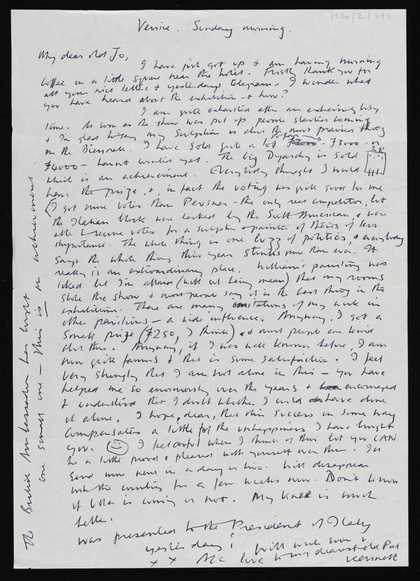 Venice. Sunday morning.
My dear old Jo,
I have just got up & am having morning
coffee in a little square near the hotel. Firstly thank you for
all your nice letters & yesterday's telegram. I wonder what
you have heard about the exhibition & how?
I am quite exhausted after an exhausting
time. As soon as the show was put up people started coming
& I'm glad to say my sculpture is about the most
in the Biennale. I have sold quite a lot £3000 -
£4000 - haven't worked yet. The big is sold
which is an achievement. Everybody thought I would
have the prize, & in fact the voting was quite good for me
(I got more votes than - the only real competitor, but
the Italian block was backed by the South American, & were
able to secure votes for a sculptor & painter of theirs of less
importance. The whole thing is one buzz of politics, & everybody
says the whole thing this year stinks more than ever. It
really is an extraordinary place. William's paintings was
liked but I'm afraid (without being mean) that my room
stole the show & most people say it is the best thing in the
exhibition. There are many imitations of my work in
other pavilions - a wide influence. Anyway, I got a
small prize (£250, I think), & most people are
about this. Anyway, if I was well known before, I am
now quite famous & this is some satisfaction. I feel
very strongly that I am not alone in this - you have
helped me so enormously over the years & encouraged
& understood that I doubt whether I could have done
it alone. I hope, dear, this success in some way
compensates a little for the unhappiness I have brought
you. I feel awful when I think of this but you CAN
be a little proud & pleased with yourself over this. I'll
send more news in a day or two. Will disappear
into the country for a few weeks soon. Don't know
if is coming or not. My knee is much
better.
Was presented to the President of Italy
yesterday! Will write soon.
x x All love to my dearest old Pal
Kenneth
The British Ambassador has bought
one small one - This is an achievement